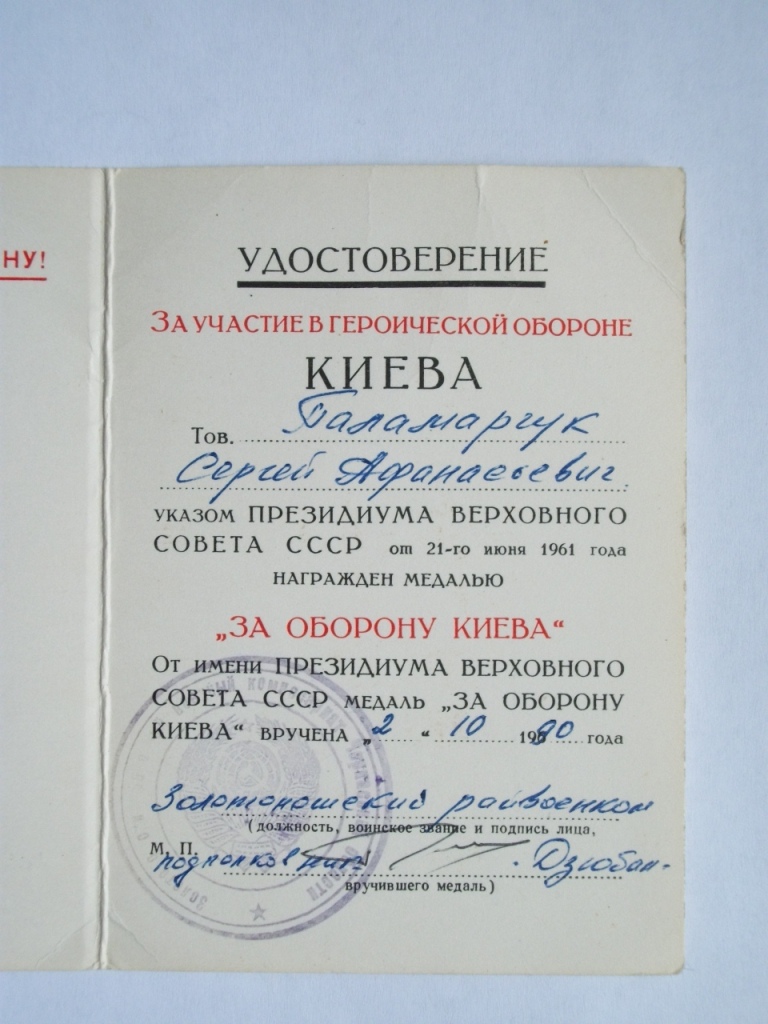 НУ!
УДОСТОВЕРЕНИЕ
ЗА УЧАСТИЕ В ГЕРОИЧЕСКОЙ ОБОРОНЕ
КИЕВА
Тов. Паламарчук
Сергей Афанасьевич
УКАЗОМ ПРЕЗИДИУМА ВЕРХОВНОГО
СОВЕТА СССР от 21-го июня 1961 года
НАГРАЖДЕН МЕДАЛЬЮ
„ЗА ОБОРОНУ КИЕВА“
ОТ ИМЕНИ ПРЕЗИДИУМА ВЕРХОВНОГО
СОВЕТА СССР МЕДАЛЬ „ЗА ОБОРОНУ
КИЕВА“ ВРУЧЕНА „2“ 10 1980 года
Золотоношский райвоенком
(должность, воинское звание и подпись лица,
М. П.
подполковник Дзюбан
вручившего медаль)